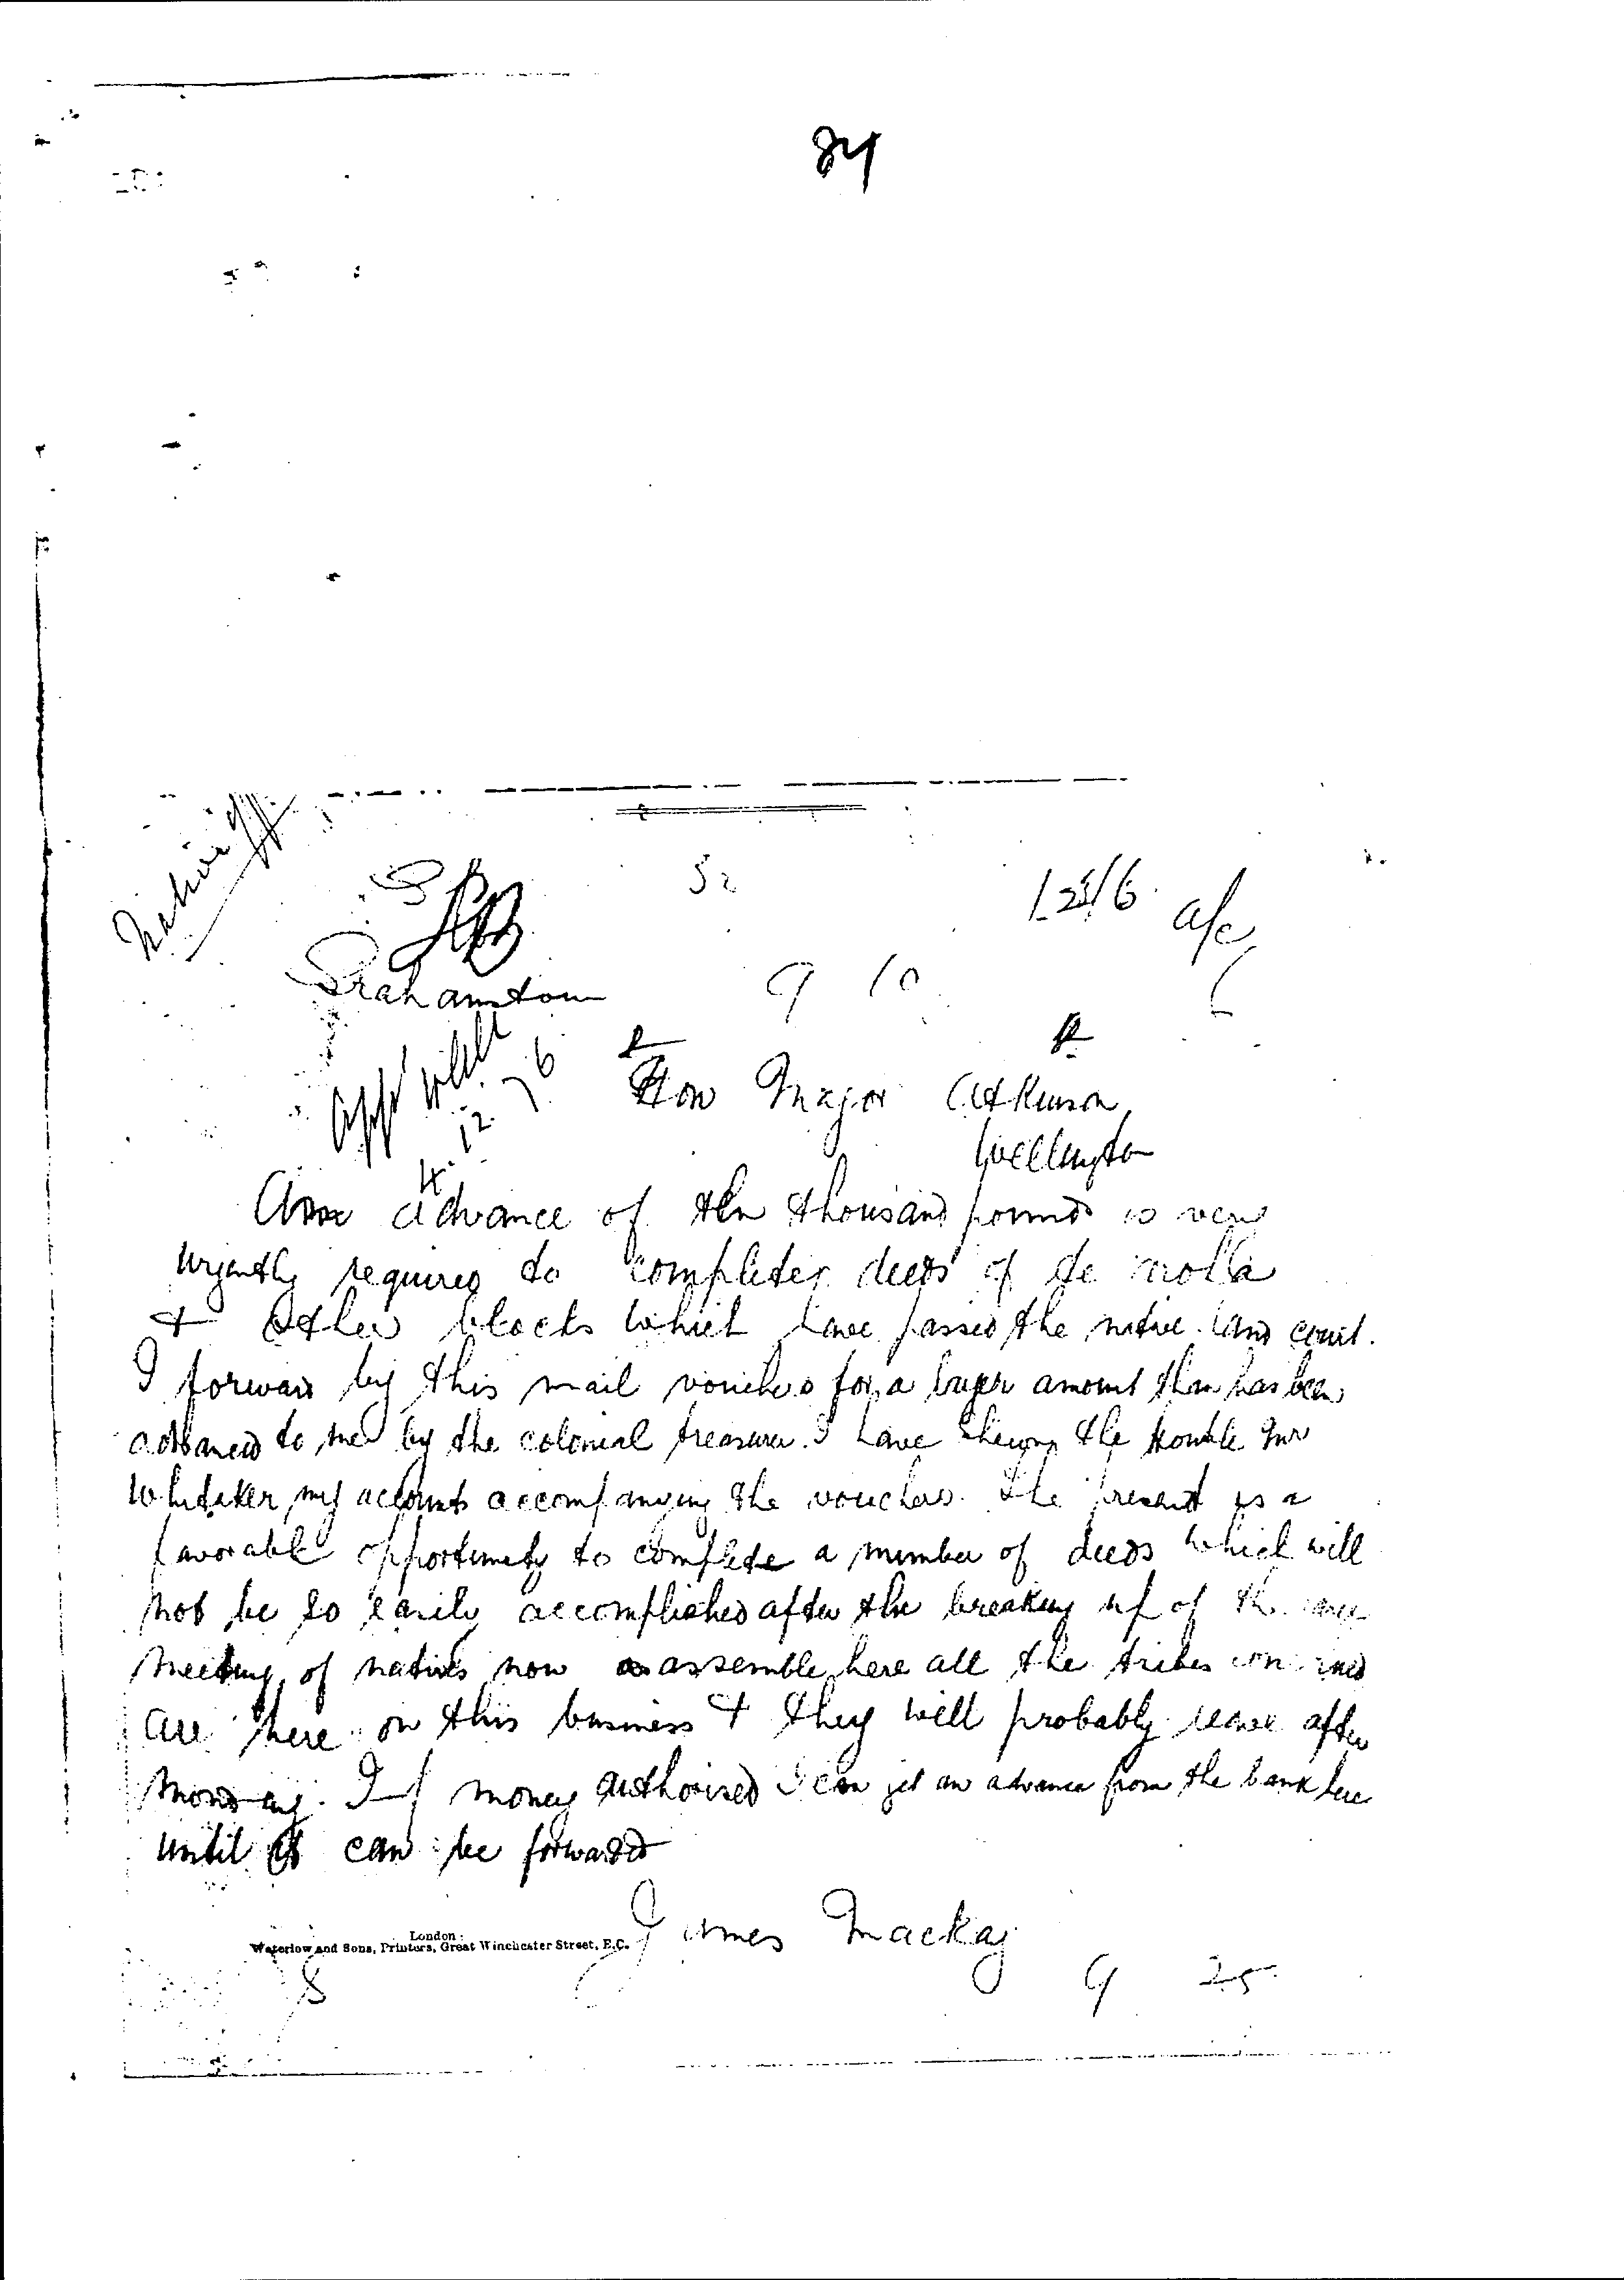 84
52
12/6
a/c
Grahamstown
9 10
12. 7. 6
Hon Major Atkinson
Wellington
An advance of ten thousand pounds is very
urgently required to complete deeds of Te Aroha
& other blocks which have passed the native land court.
I forward by this mail vouchers for a larger amount than has been
advanced to me by the colonial treasurer. I have shewn the Honble Mr
Whitaker my accounts accompanying the vouchers. The present is a
favorable opportunity to complete a number of deeds which will
not be so easily accomplished after the breaking up of the large
meeting of natives now assemble here all the tribes concerned
are here on this business & they will probably leave after
Monday. If money authorised I can get an advance from the bank here
until it can be forwarded
James Mackay
London:
Waterlow and Sons, Printers, Great Winchester Street, E.C.
9 25